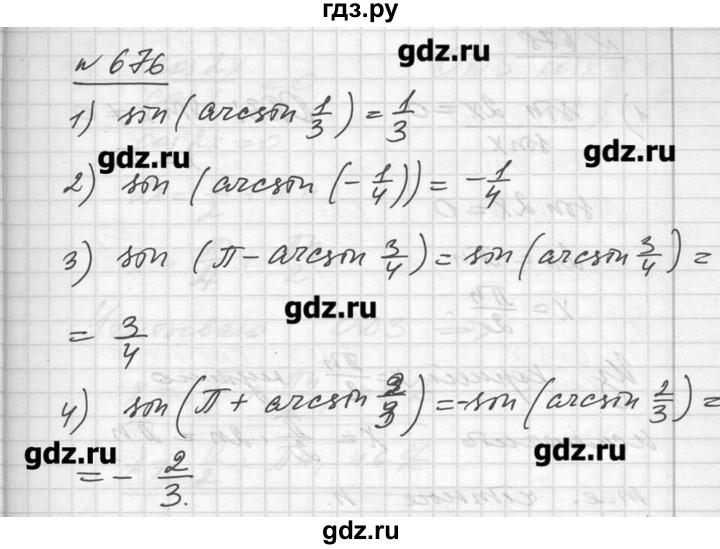 гдз.ру
gdz.ru
№ 676
1) sin(arcsin 1/3) = 1/3
gdz.ru gdz.ru
2) sin (arcsin (- 1/4)) = - 1/4
3) sin (π - arcsin 3/4) = sin(arcsin 3/4) =
gdz.ru
= 3/4
4) sin(π + arcsin 2/3) = -sin(arcsin 2/3) =
gdz.ru gdz.ru
= - 2/3.
gdz.ru